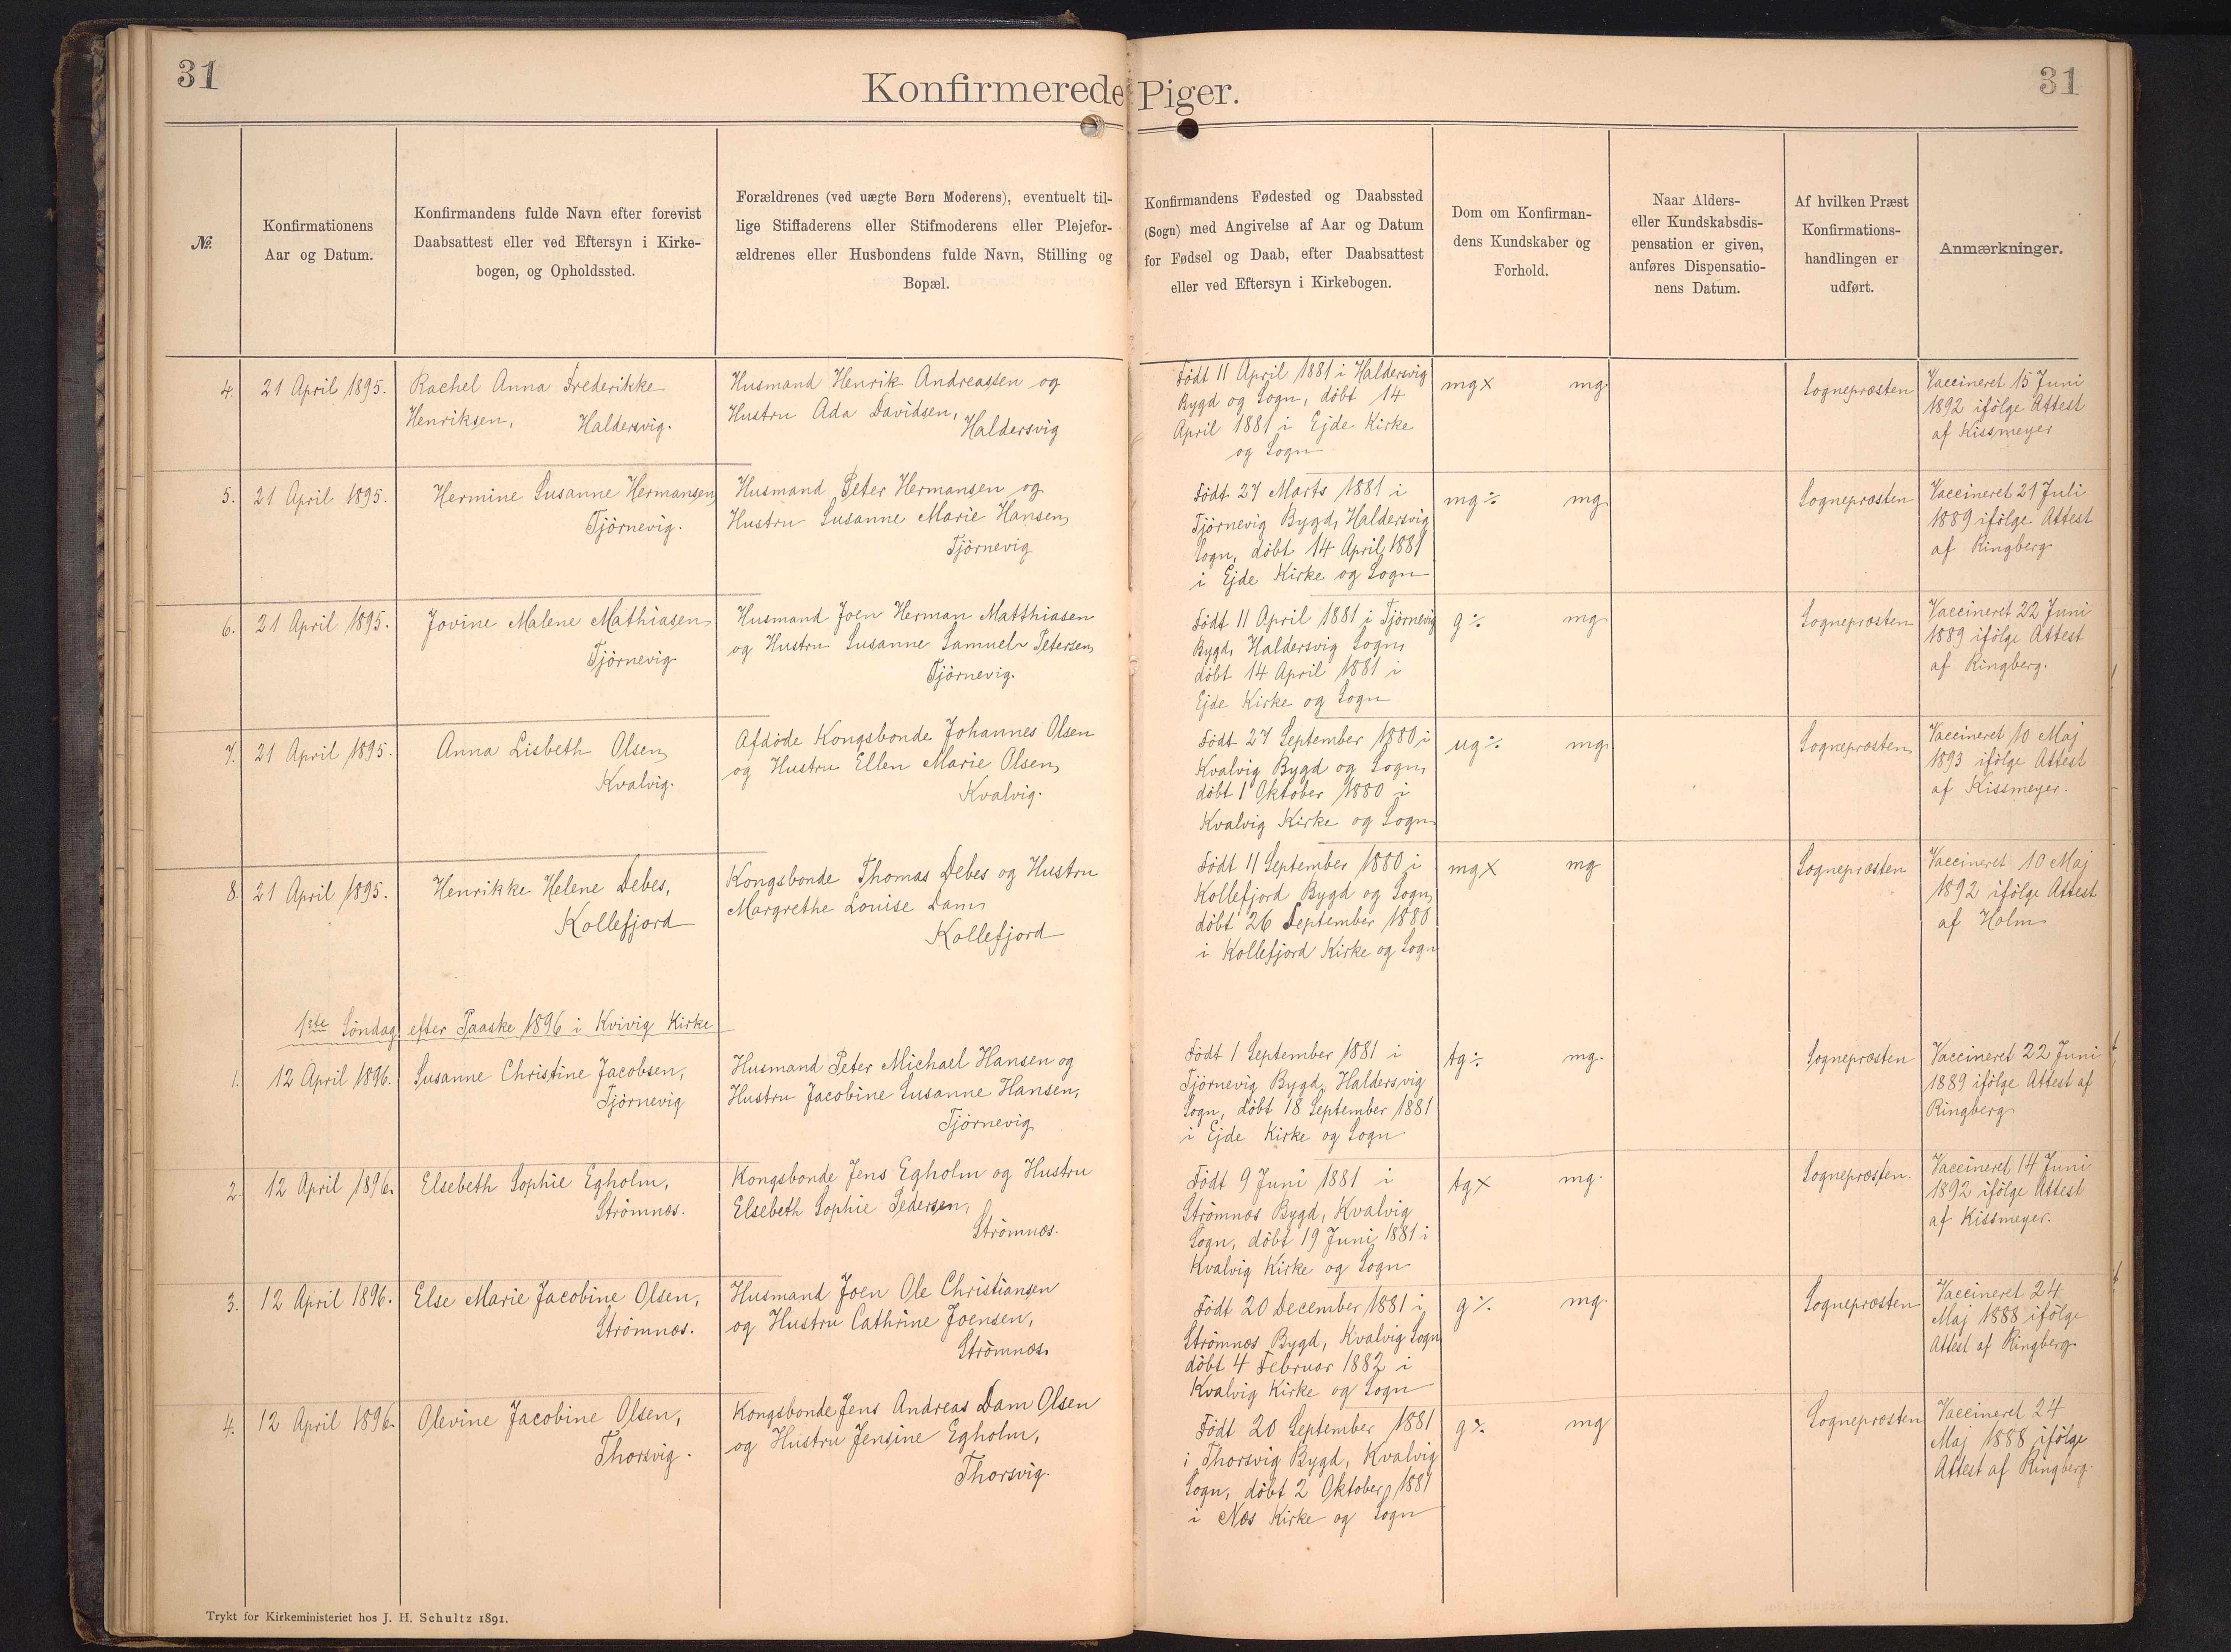 31
Konfirmerede Piger.
31
No.
Konfirmationens
Aar og Datum.
Konfirmandens fulde Navn efter forevist
Daabsattest eller ved Eftersyn i Kirke-
bogen, og Opholdssted.
Forældrenes (ved uægte Børn Moderens), eventuelt til-
lige Stiffaderens eller Stifmoderens eller Plejefor-
ældrenes eller Husbondens fulde Navn, Stilling og
Bopæl.
Konfirmandens Fødested og Daabssted
(Sogn) med Angivelse af Aar og Datum
for Fødsel og Daab, efter Daabsattest
eller ved Eftersyn i Kirkebogen.
Dom om Konfirman-
dens Kundskaber og
Forhold.
Naar Alders-
eller Kundskabsdis-
pensation er given,
anføres Dispensatio-
nens Datum.
Af hvilken Præst
Konfirmations-
handlingen er
udført.
Anmærkninger.
4. 21 April 1895.
Rachel Anna Frederikke
Henriksen,
Haldersvig.
Husmand Henrik Andreassen og
Hustru Ada Davidsen,
Haldersvig
Født 11 April 1881 i Haldersvig
Bygd og Sogn, döbt 14
April 1881 i Ejde Kirke
og Sogn
mg× mg.
Sognepræsten
Vaccineret 15 Juni
1892 ifölge Attest
af Kissmeyer
5. 21 April 1895.
Hermine Susanne Hermansen,
Tjörnevig.
Husmand Peter Hermansen og
Hustru Susanne Marie Hansen,
Tjörnevig
Födt 27 Marts 1881 i
Tjörnevig Bygd, Haldersvig
Sogn, döbt 14 April 1881
i Ejde Kirke og Sogn
mg÷ mg.
Sognepræsten
Vaccineret 21 Juli
1889 ifölge Attest
af Ringberg
6. 21 April 1895.
Jovine Malene Mathiasen
Tjörnevig
Husmand Joen Herman Matthiasen
og Hustru Susanne Samuel Petersen,
Tjörnevig.
Födt 11 April 1881 i Tjörnevig
Bygd, Haldersvig Sogn,
döbt 14 April 1881 i
Ejde Kirke og Sogn
g÷ mg
Sognepræsten
Vaccineret 22 Juni
1889 ifölge Attest
af Ringberg.
7. 21 April 1895.
Anna Lisbeth Olsen,
Kvalvig.
Afdöde Kongsbonde Johannes Olsen
og Hustru Ellen Marie Olsen,
Kvalvig.
Födt 27 September 1880 i
Kvalvig Bygd og Sogn,
döbt 1 Oktober 1880 i
Kvalvig Kirke og Sogn
ug÷ mg.
Sognepræsten
Vaccineret 10 Maj
1893 ifölge Attest
af Kissmeyer.
8. 21 April 1895.
Henrikke Helene Debes,
Kollefjord
Kongsbonde Thomas Debes og Hustru
Margrethe Louise Dam
Kollefjord
Födt 11 September 1880 i
Kollefjord Bygd og Sogn,
döbt 26 September 1880
i Kollefjord Kirke og Sogn
mg× mg
Sognepræsten
Vaccineret 10 Maj
1892 ifölge Attest
af Holm
1ste Söndag efter Paaske 1896 i Kvivig Kirke
1. 12 April 1896.
Susanne Christine Jacobsen,
Tjörnevig
Husmand Peter Michael Hansen og
Hustru Jacobine Susanne Hansen,
Tjörnevig
Födt 1 September 1881 i
Tjörnevig Bygd, Haldersvig
Sogn, döbt 18 September 1881
i Ejde Kirke og Sogn
tg÷ mg.
Sognepræsten
Vaccineret 22 Juni
1889 ifölge Attest af
Ringberg
2. 12 April 1896.
Elsebeth Sophie Egholm,
Strömnæs.
Kongsbonde Jens Egholm og Hustru
Elsebeth Sophie Pedersen,
Strömnæs.
Födt 9 Juni 1881 i
Strömnæs Bygd, Kvalvig
Sogn, döbt 19 Juni 1881 i
Kvalvig Kirke og Sogn
tg× mg.
Sognepræsten.
Vaccineret 14 Juni
1892 ifölge Attest
af Kissmeyer.
3. 12 April 1896.
Else Marie Jacobine Olsen,
Strömnæs.
Husmand Joen Ole Christiansen
og Hustru Cathrine Joensen,
Strömnæs.
Födt 20 December 1881 i
Strömnæs Bygd, Kvalvig Sogn
döbt 4 Februar 1882 i
Kvalvig Kirke og Sogn
g÷ mg.
Sognepræsten
Vaccineret 24
Maj 1888 ifölge
Attest af Ringberg
4. 12 April 1896.
Olevine Jacobine Olsen,
Thorsvig.
Kongsbonde Jens Andreas Dam Olsen
og Hustru Jensine Egholm,
Thorsvig.
Födt 20 September 1881
i Thorsvig Bygd, Kvalvig
Sogn, döbt 2 Oktober 1881
i Næs Kirke og Sogn
g÷ mg
Sognepræsten
Vaccineret 24
Maj 1888 ifölge
Attest af Ringberg.
Trykt for Kirkeministeriet hos J. H. Schultz 1891.